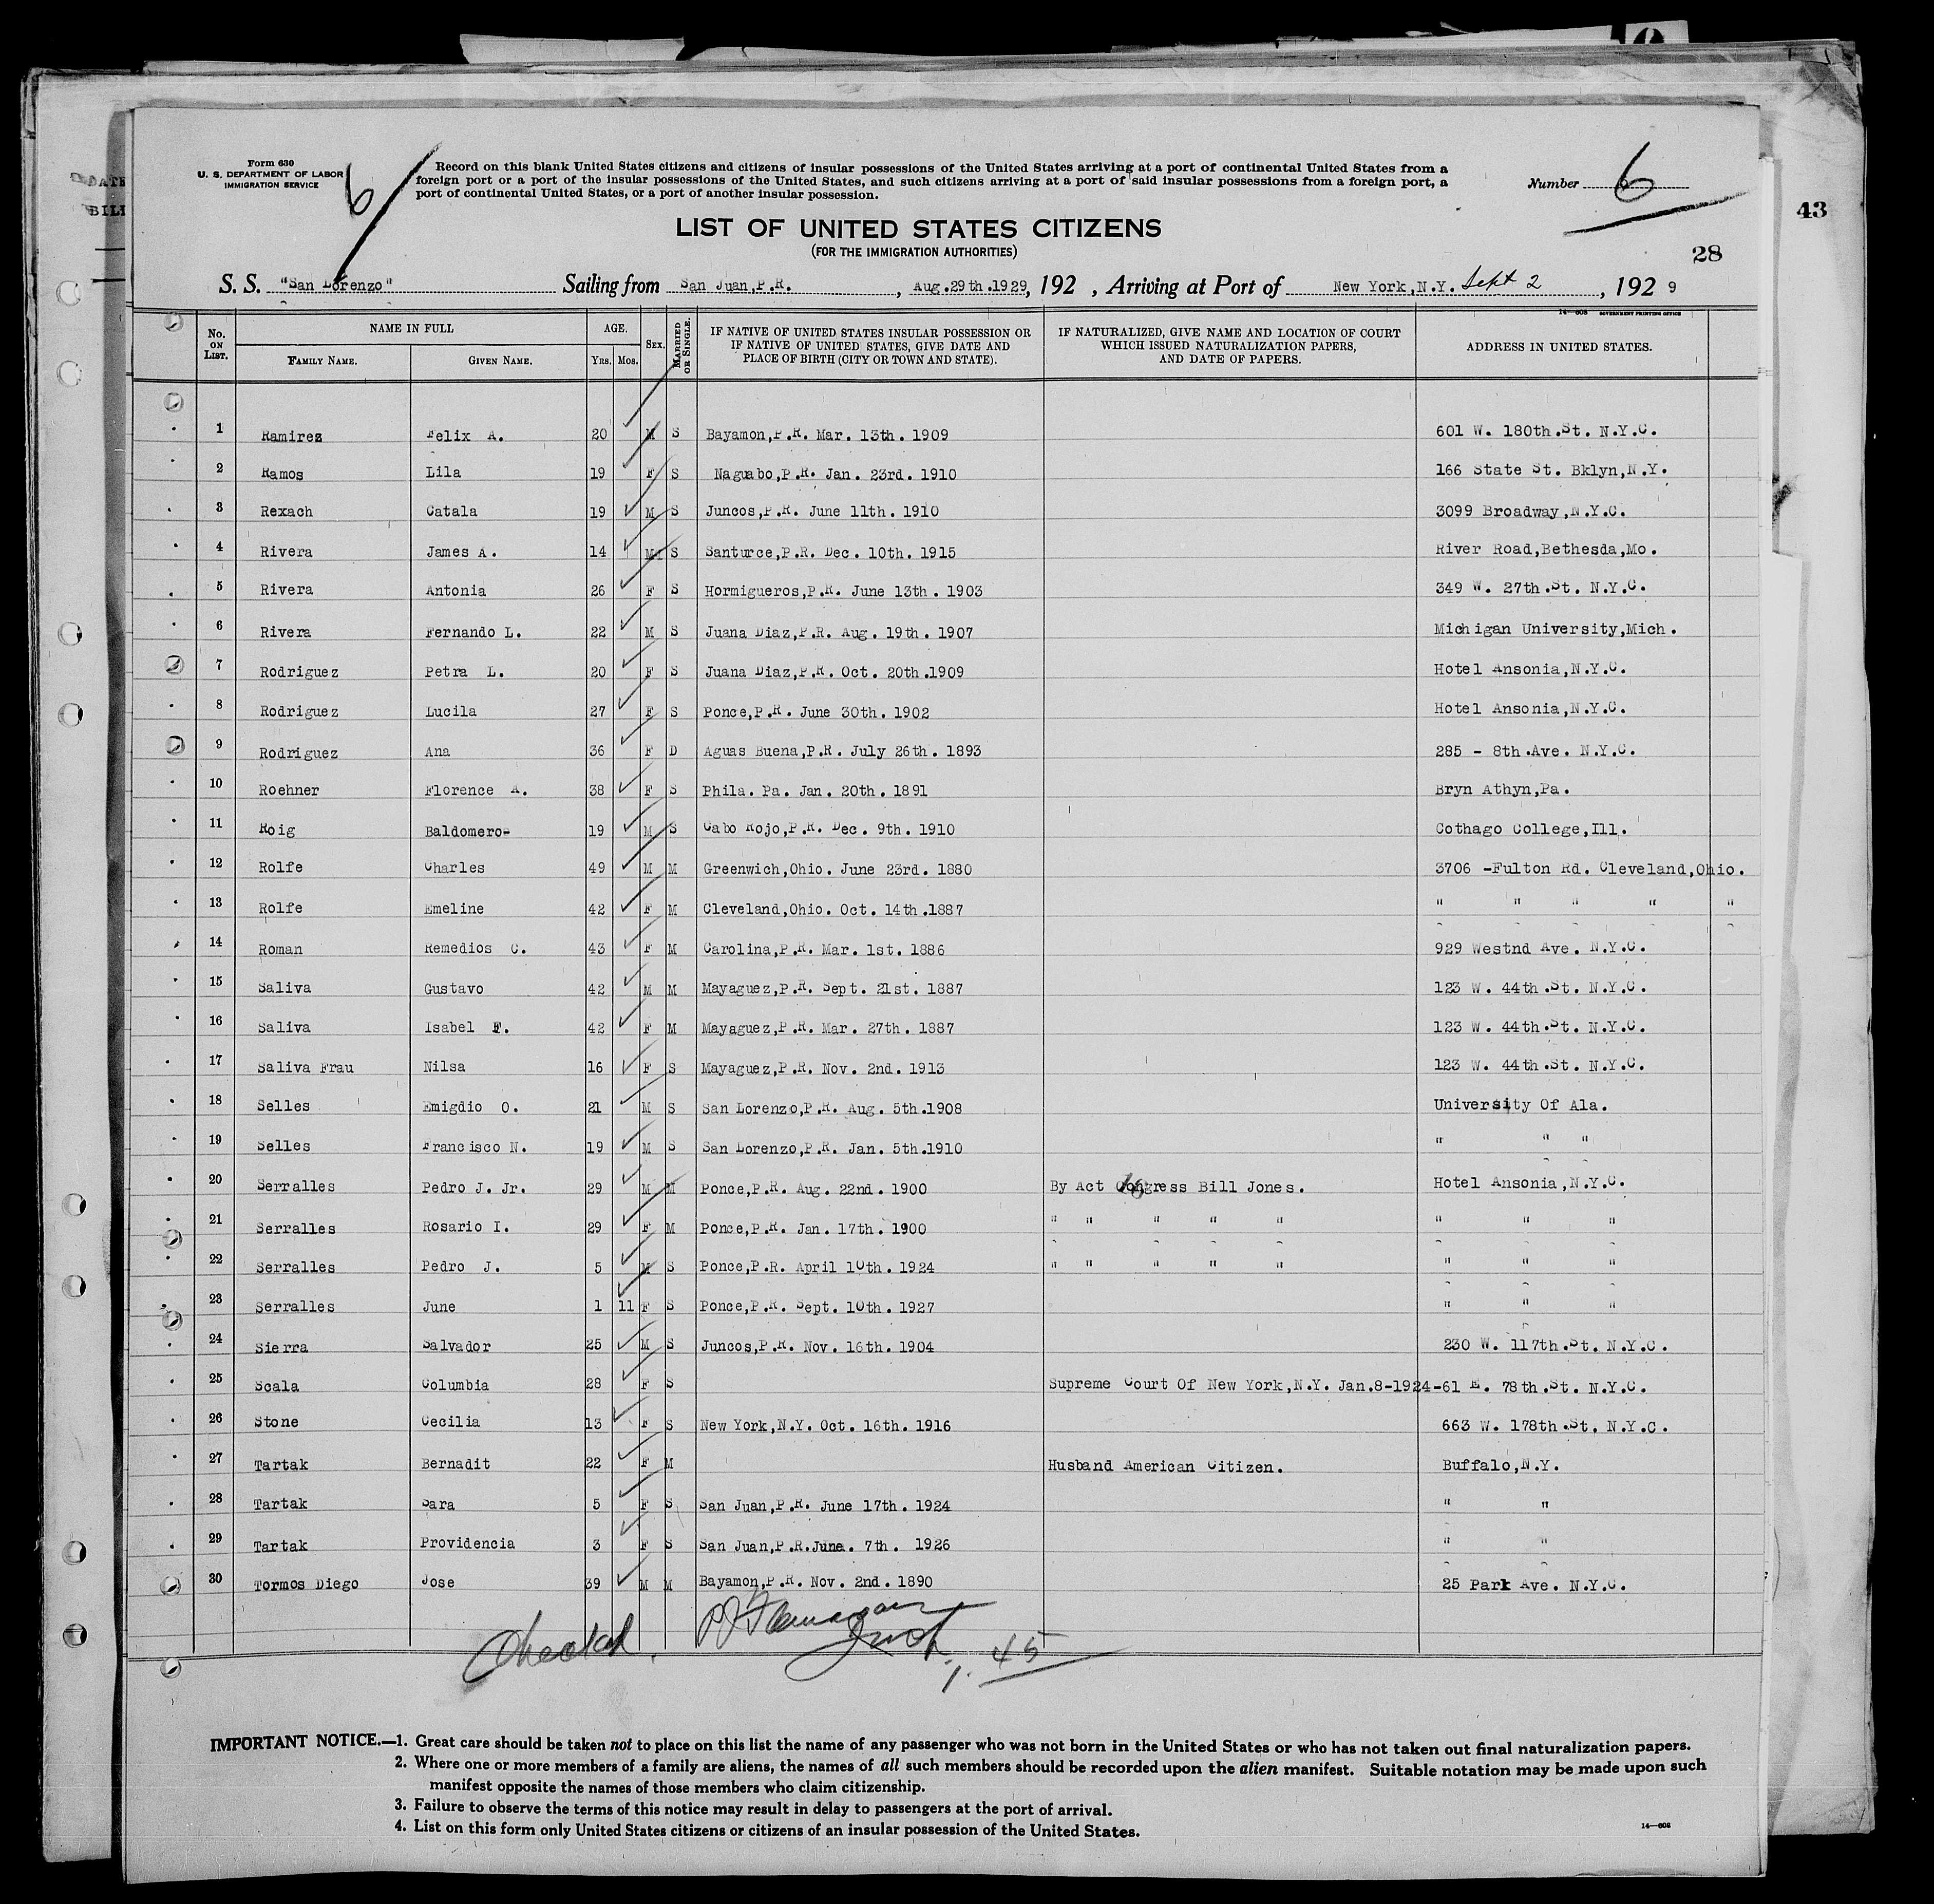 Form 630
U. S. DEPARTMENT OF LABOR
IMMIGRATION SERVICE
6
Record on this blank United States citizens and citizens of insular possessions of the United States arriving at a port of continental United States from a
foreign port or a port of the insular possessions of the United States, and such citizens arriving at a port of said insular possessions from a foreign port, a
port of continental United States, or a port of another insular possession.
Number 6
43
LIST OF UNITED STATES CITIZENS
(FOR THE IMMIGRATION AUTHORITIES)
28
S. S. "San Lorenzo" Sailing from San Juan,P.R. , Aug.29th.1929, 192 , Arriving at Port of New York,N.Y. Sept 2 , 192 9
14—608 GOVERNMENT PRINTING OFFICE
No. ON LIST. NAME IN FULL FAMILY NAME. GIVEN NAME. AGE. YRS. MOS. SEX. MARRIED OR SINGLE. IF NATIVE OF UNITED STATES INSULAR POSSESSION OR IF NATIVE OF UNITED STATES, GIVE DATE AND PLACE OF BIRTH (CITY OR TOWN AND STATE). IF NATURALIZED, GIVE NAME AND LOCATION OF COURT WHICH ISSUED NATURALIZATION PAPERS, AND DATE OF PAPERS. ADDRESS IN UNITED STATES.
1 Ramirez Felix A. 20 M S Bayamon,P.R. Mar. 13th. 1909 601 W. 180th.St. N.Y.C.
2 Ramos Lila 19 F S Naguabo,P.R. Jan. 23rd. 1910 166 State St. Bklyn,N.Y.
3 Rexach Catala 19 M S Juncos,P.R. June 11th. 1910 3099 Broadway,N.Y.C.
4 Rivera James A. 14 M S Santurce,P.R. Dec. 10th. 1915 River Road,Bethesda,Mo.
5 Rivera Antonia 26 F S Hormigueros,P.R. June 13th. 1903 349 W. 27th.St. N.Y.C.
6 Rivera Fernando L. 22 M S Juana Diaz,P.R. Aug. 19th. 1907 Michigan University,Mich.
7 Rodriguez Petra L. 20 F S Juana Diaz,P.R. Oct. 20th.1909 Hotel Ansonia,N.Y.C.
8 Rodriguez Lucila 27 F S Ponce,P.R. June 30th. 1902 Hotel Ansonia,N.Y.C.
9 Rodriguez Ana 36 F D Aguas Buena,P.R. July 26th. 1893 285 - 8th.Ave. N.Y.C.
10 Roehner Florence A. 38 F S Phila. Pa. Jan. 20th. 1891 Bryn Athyn,Pa.
11 Roig Baldomero- 19 M S Cabo Rojo,P.R. Dec. 9th. 1910 Cothago College,Ill.
12 Rolfe Charles 49 M M Greenwich,Ohio. June 23rd. 1880 3706 -Fulton Rd. Cleveland,Ohio.
13 Rolfe Emeline 42 F M Cleveland,Ohio. Oct. 14th.1887 " " " " "
14 Roman Remedios C. 43 F M Carolina,P.R. Mar. 1st. 1886 929 Westnd Ave. N.Y.C.
15 Saliva Gustavo 42 M M Mayaguez,P.R. Sept. 21st. 1887 123 W. 44th.St. N.Y.C.
16 Saliva Isabel F. 42 F M Mayaguez,P.R. Mar. 27th. 1887 123 W. 44th.St. N.Y.C.
17 Saliva Frau Nilsa 16 F S Mayaguez,P.R. Nov. 2nd. 1913 123 W. 44th.St. N.Y.C.
18 Selles Emigdio O. 21 M S San Lorenzo,P.R. Aug. 5th.1908 University Of Ala.
19 Selles Francisco N. 19 M S San Lorenzo,P.R. Jan. 5th.1910 " " "
20 Serralles Pedro J. Jr. 29 M M Ponce,P.R. Aug. 22nd. 1900 By Act Congress Bill Jones. Hotel Ansonia,N.Y.C.
21 Serralles Rosario I. 29 F M Ponce,P.R. Jan. 17th. 1900 " " " " " " " "
22 Serralles Pedro J. 5 M S Ponce,P.R. April 10th. 1924 " " " " " " " "
23 Serralles June 1 11 F S Ponce,P.R. Sept. 10th. 1927 " " "
24 Sierra Salvador 25 M S Juncos,P.R. Nov. 16th. 1904 230 W. 117th.St. N.Y.C.
25 Scala Columbia 28 F S Supreme Court Of New York,N.Y. Jan.8-1924-61 E. 78th.St. N.Y.C.
26 Stone Cecilia 13 F S New York,N.Y. Oct. 16th. 1916 663 W. 178th.St. N.Y.C.
27 Tartak Bernadit 22 F M Husband American Citizen. Buffalo,N.Y.
28 Tartak Sara 5 F S San Juan,P.R. June 17th. 1924 " "
29 Tartak Providencia 3 F S San Juan,P.R.June. 7th. 1926 " "
30 Tormos Diego Jose 39 M M Bayamon,P.R. Nov. 2nd. 1890 25 Park Ave. N.Y.C.
Checked. Insp. 45
IMPORTANT NOTICE.—1. Great care should be taken not to place on this list the name of any passenger who was not born in the United States or who has not taken out final naturalization papers.
2. Where one or more members of a family are aliens, the names of all such members should be recorded upon the alien manifest. Suitable notation may be made upon such
manifest opposite the names of those members who claim citizenship.
3. Failure to observe the terms of this notice may result in delay to passengers at the port of arrival.
4. List on this form only United States citizens or citizens of an insular possession of the United States.
14—608